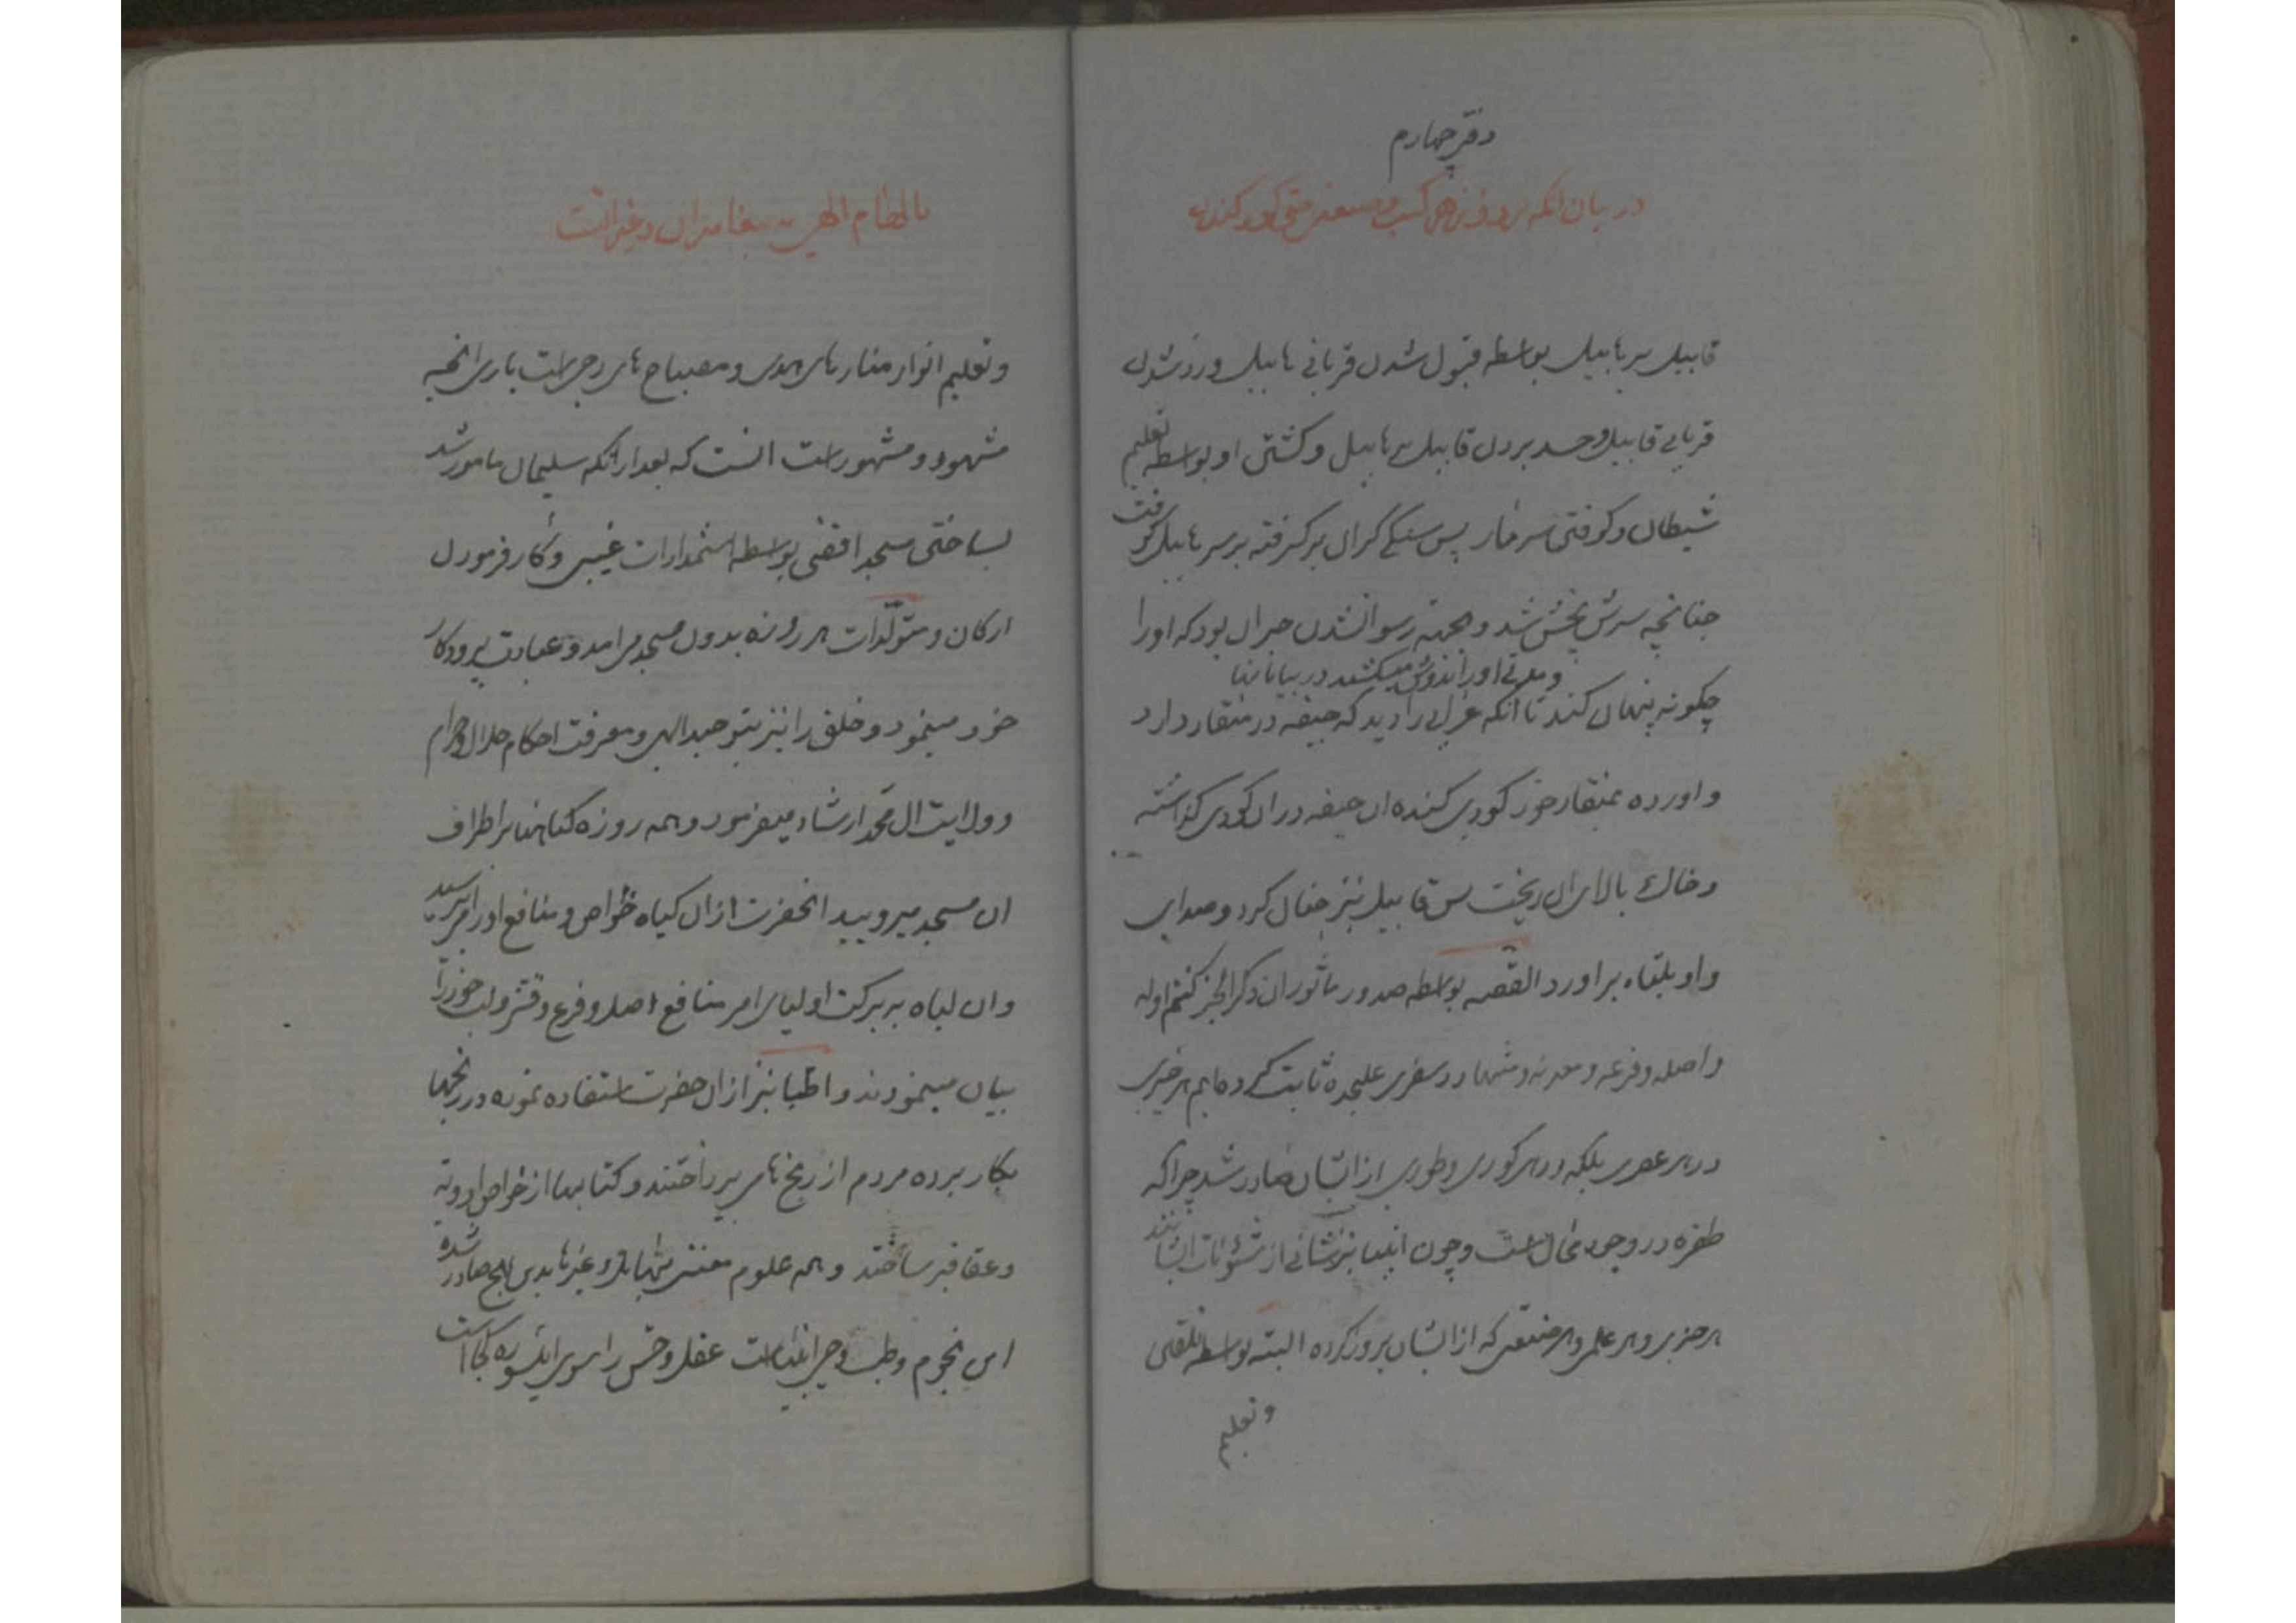 دفتر چهارم
در بیان انکه بروز هر کسب و صنعتی حتی گور کندن
قابیل بر هابیل بواسطه قبول شدن قربانی هابیل و رد شدن
قربانی قابیل و حسد بردن قابیل بر هابیل و کشتن او بواسطه تعلیم
شیطان و کوفتن سر مار پس سنگی کران بر گرفته بر سر هابیل کوفت
چنانچه سرش پخش شد و بجهته رسوا نشدن حیران بود که اورا
و مدتی اورا بدوش میکشید در بیابانها
چکونه پنهان کند تا انکه غرابی را دید که جیفه در منقار دارد
و اورده بمنقار خود کودی کنده ان جیفه در ان کودی گذاشته
و خاک بالای ان ریخت پس قابیل نیز چنان کرد و صدای
واویلتاه بر اورد القصه بواسطه صدور ماثور ان ذکر الخیر کنتم اوله
و اصله و فرعه و معدنه و منتهاه در سفری علیحده ثابت کرده ایم هر خیری
در هر عصری بلکه در هر کوری و طوری از ایشان صادر شد چرا که
طفره در وجود محال است و چون انبیا نیز شانی از شئونات ایشانند
هر خبر و هر علمی و هر صنعتی که از ایشان بروز کرده البته بواسطه تلقین
و تعلیم
بالهام الهی به پیغامبران و غیر انست
و تعلیم انوار منارهای هدی و مصباح های دجی است باری انچه
مشهود و مشهور است انست که بعد از انکه سلیمان مامور شد
بساختن مسجد اقصی بواسطه استمدادات غیبی و کار فرمودن
ارکان و متولدات هر روزه بدون مسجد می امد و عبادت پروردکار
خود مینمود و خلق را نیز بتوحید الهی و معرفت احکام حلال و حرام
و ولایت ال محمد ارشاد میفرمود و همه روزه کیاهها بر اطراف
ان مسجد میروئید انحضرت از ان کیاه خواص و منافع اورا می پرسید
و ان کیاه به برکت اولیای امر منافع اصل و فرع و قشر و لب خود را
بیان مینمودند و اطبا نیز از ان حضرت استفاده نموده در رنجها
بکار برده مردم از رنج های پرداختند و کتابها از خواص ادویه
و عقاقیر ساختند و همه علوم معتنی بها بلکه و غیرها بدین نهج صادر شده
این نجوم و طب وحی انبیاست عقل و حس را سوی بیسو ره کجا است